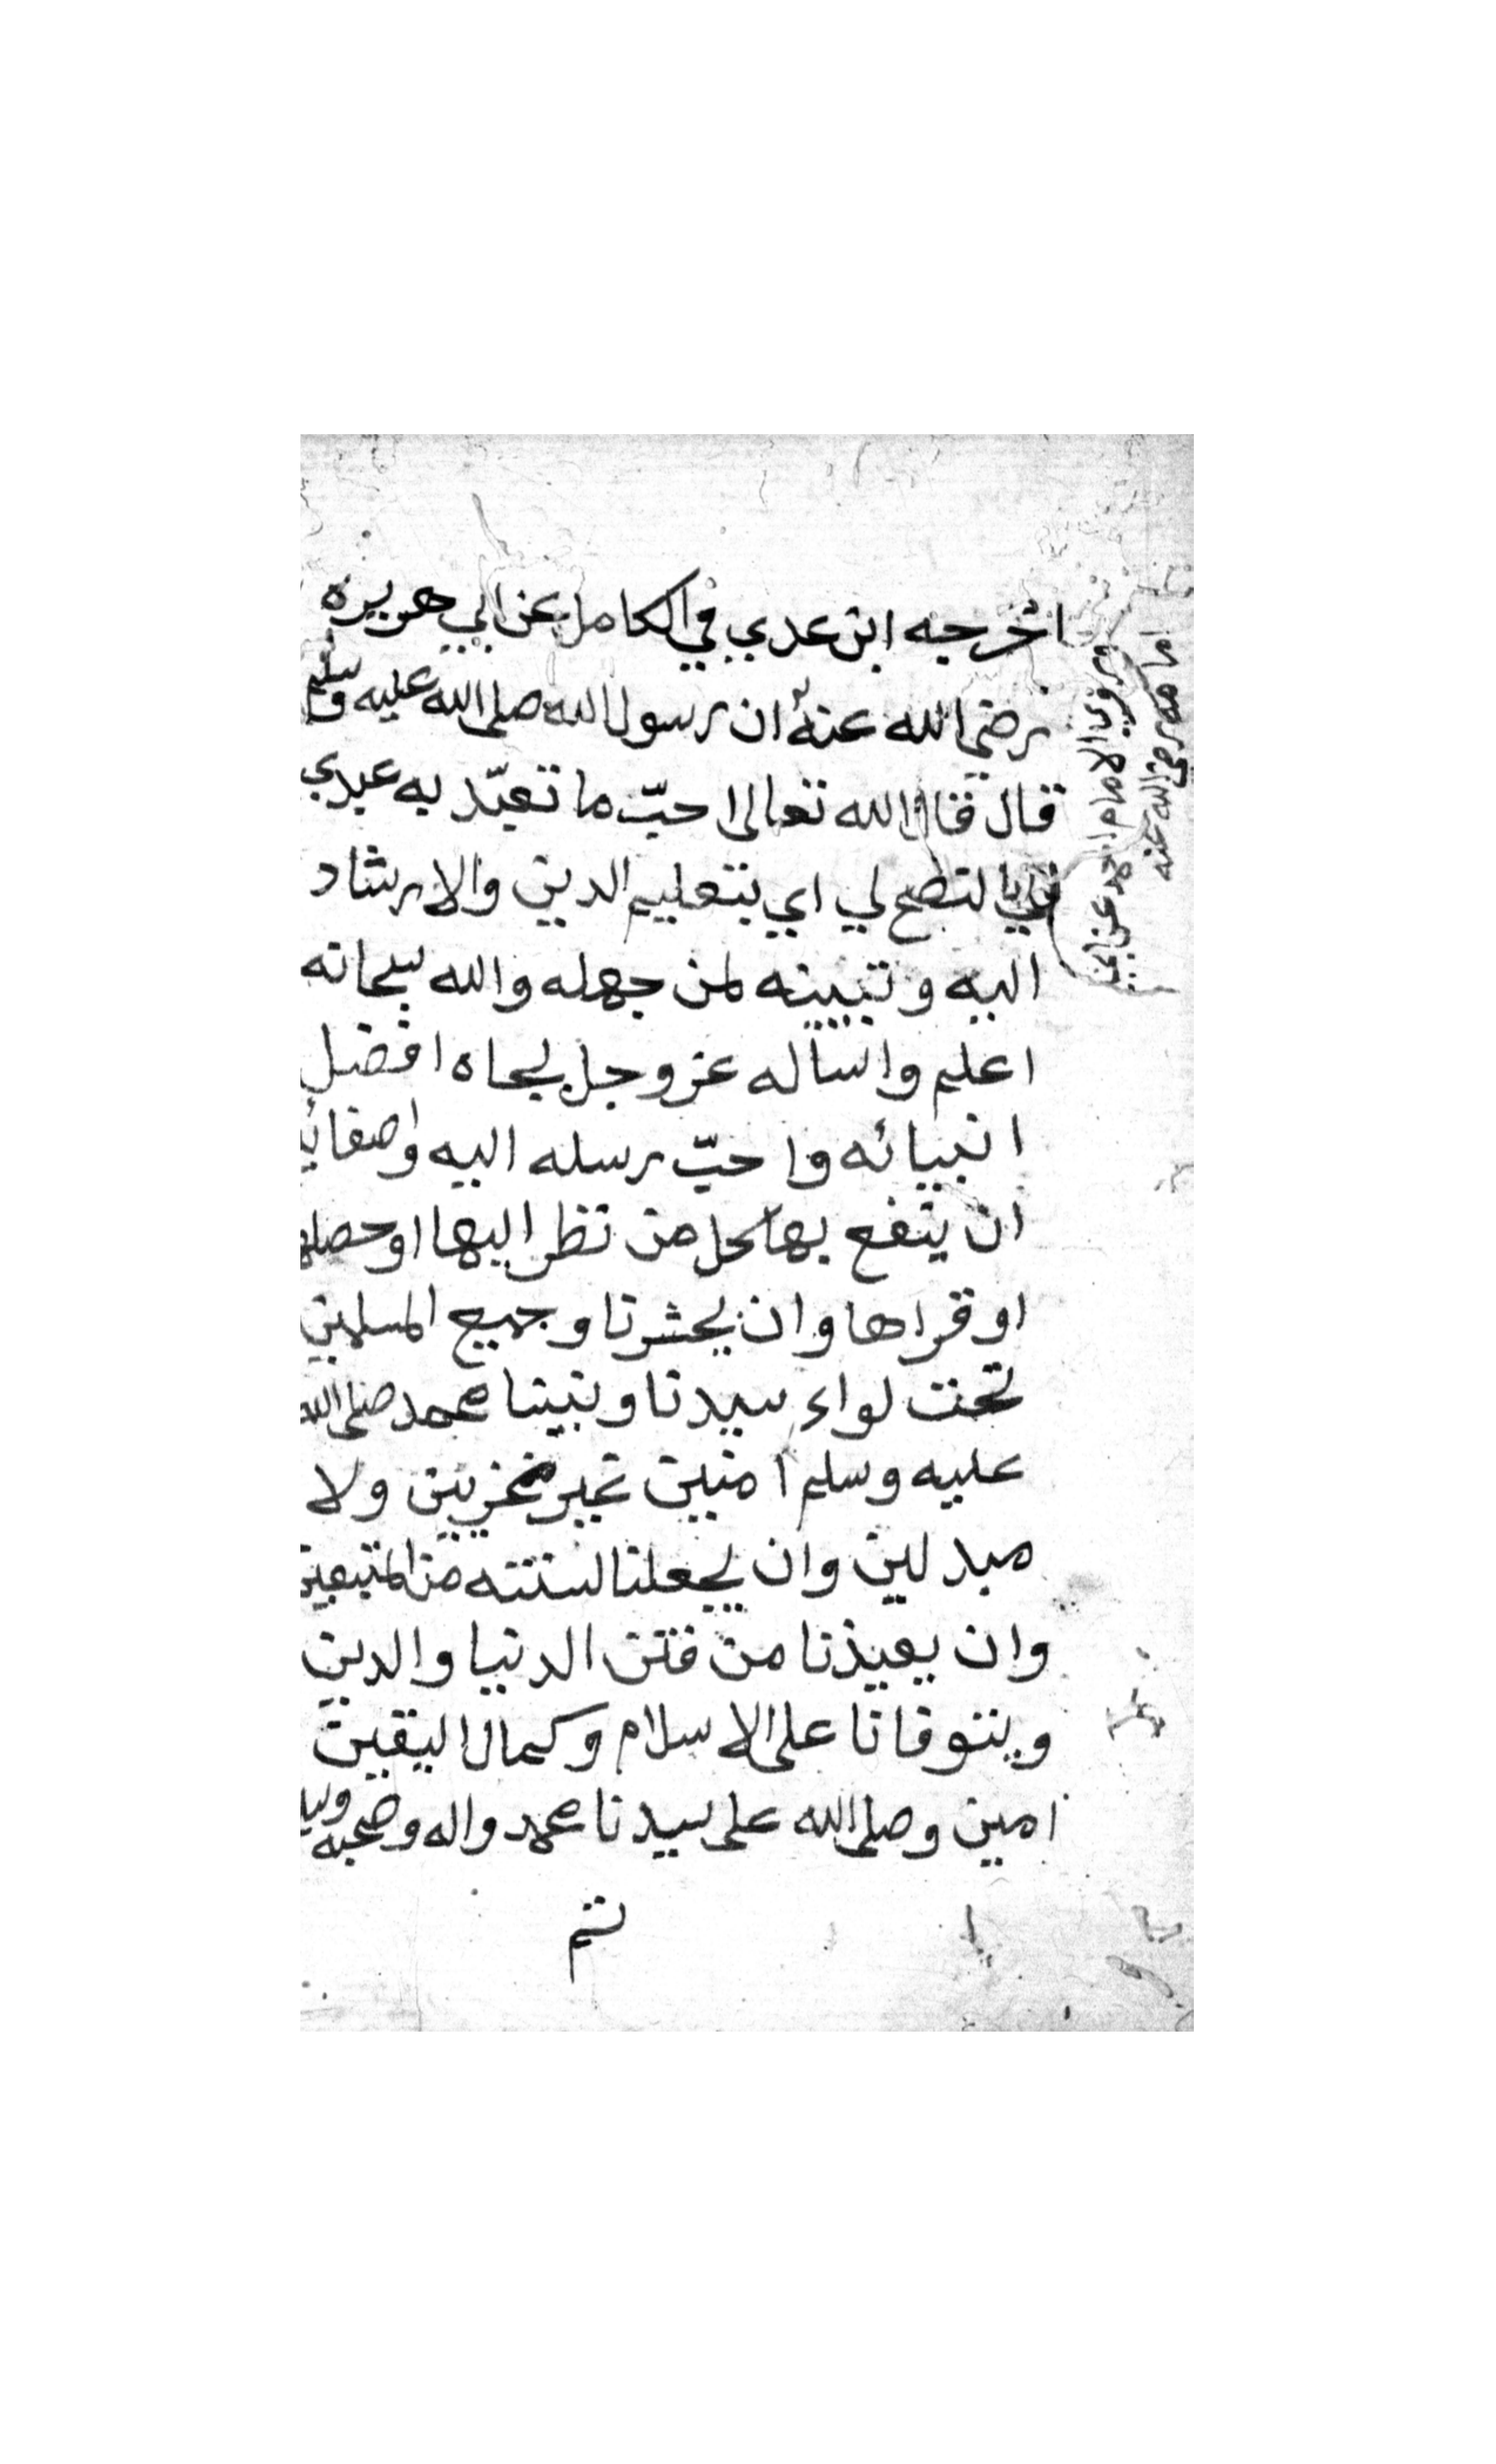 اخرجه ابن عدي في الكامل عن ابي هريره
رضي الله عنه ان رسول الله صلى الله عليه وسلم
قال قال الله تعالى احبّ ما تعبّد به عبدي
النصح لي اي بتعليم الدين والارشاد
اليه وتبيينه لمن جهله والله سبحانه
اعلم واساله عز وجل بجاه افضل
انبيائه واحبّ رسله اليه واصفائه
ان ينفع بها كل من نظر اليها او حصلها
او قراها وان يحشرنا وجميع المسلمين
تحت لواء سيدنا ونبينا محمد صلى الله
عليه وسلم امنين غير مخزيين ولا
مبدلين وان يجعلنا لسنته من المتبعين
وان يعيذنا من فتن الدنيا والدين
ويتوفانا على الاسلام وكمال اليقين
امين وصلى الله على سيدنا محمد واله وصحبه
تم
وروى الامام احمد عن ابي
امامه رضي الله عنه